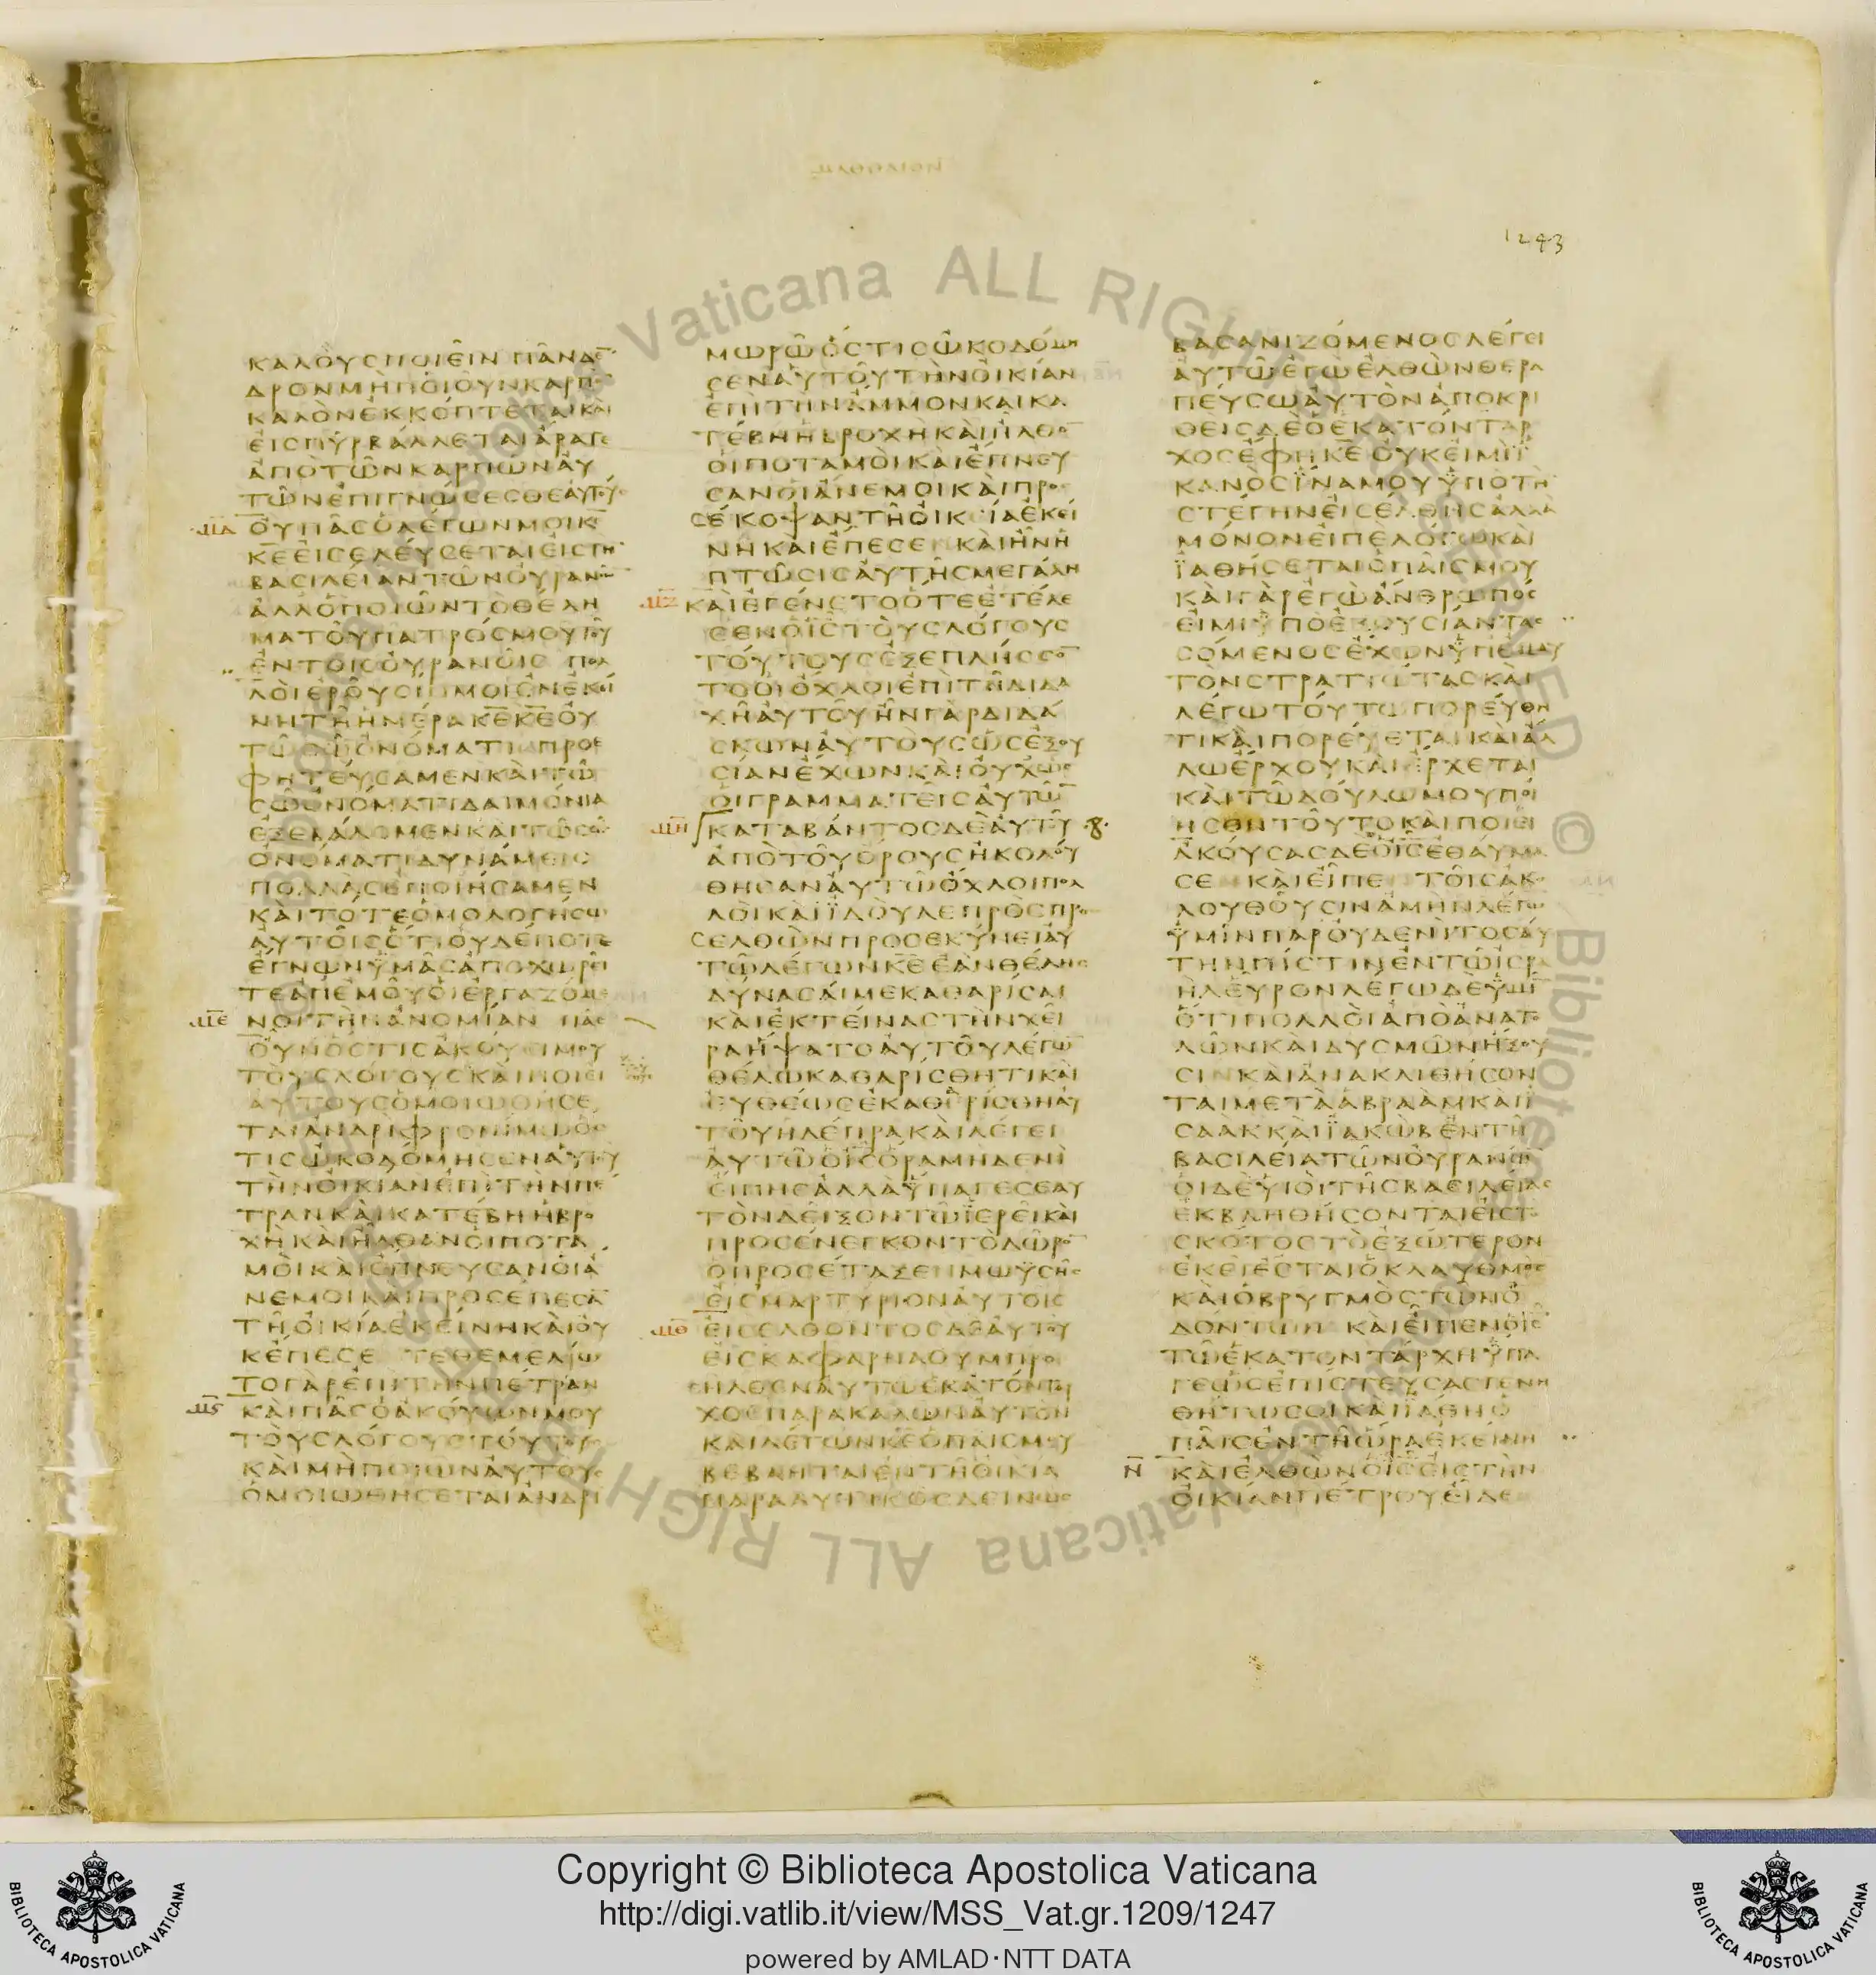 1243
ΚΑΛΟΥΣΠΟΙΕΙΝΠΑΝΔΕ
ΔΡΟΝΜΗΠΟΙΟΥΝΚΑΡΠΟ
ΚΑΛΟΝΕΚΚΟΠΤΕΤΑΙΚΑΙ
ΕΙΣΠΥΡΒΑΛΛΕΤΑΙΑΡΑΓΕ
ΑΠΟΤΩΝΚΑΡΠΩΝΑΥ
ΤΩΝΕΠΙΓΝΩΣΕΣΘΕΑΥΤΟΥΣ
ΟΥΠΑΣΟΛΕΓΩΝΜΟΙΚΕ
ΚΕΕΙΣΕΛΕΥΣΕΤΑΙΕΙΣΤΗ
ΒΑΣΙΛΕΙΑΝΤΩΝΟΥΡΑΝΩ
ΑΛΛΟΠΟΙΩΝΤΟΘΕΛΗ
ΜΑΤΟΥΠΑΤΡΟΣΜΟΥΤΟΥ
ΕΝΤΟΙΣΟΥΡΑΝΟΙΣ ΠΟΛ
ΛΟΙΕΡΟΥΣΙΜΟΙΕΝΕΚΕΙ
ΝΗΤΗΗΜΕΡΑΚΕΚΕΟΥ
ΤΩΣΩΟΝΟΜΑΤΙΕΠΡΟΕ
ΦΗΤΕΥΣΑΜΕΝΚΑΙΤΩ
ΣΩΟΝΟΜΑΤΙΔΑΙΜΟΝΙΑ
ΕΞΕΒΑΛΟΜΕΝΚΑΙΤΩΣΩ
ΟΝΟΜΑΤΙΔΥΝΑΜΕΙΣ
ΠΟΛΛΑΣΕΠΟΙΗΣΑΜΕΝ
ΚΑΙΤΟΤΕΟΜΟΛΟΓΗΣΩ
ΑΥΤΟΙΣΟΤΙΟΥΔΕΠΟΤΕ
ΕΓΝΩΝΫΜΑΣΑΠΟΧΩΡΕΙ
ΤΕΑΠΕΜΟΥΟΙΕΡΓΑΖΟΜΕ
ΝΟΙΤΗΝΑΝΟΜΙΑΝ ΠΑΣ
ΟΥΝΟΣΤΙΣΑΚΟΥΕΙΜΟΥ
ΤΟΥΣΛΟΓΟΥΣΚΑΙΠΟΙΕΙ
ΑΥΤΟΥΣΟΜΟΙΩΘΗΣΕ
ΤΑΙΑΝΔΡΙΦΡΟΝΙΜΩΟΣ
ΤΙΣΩΚΟΔΟΜΗΣΕΝΑΥΤΟΥ
ΤΗΝΟΙΚΙΑΝΕΠΙΤΗΝΠΕ
ΤΡΑΝΚΑΙΚΑΤΕΒΗΗΒΡΟ
ΧΗΚΑΙΗΛΘΑΝΟΙΠΟΤΑ
ΜΟΙΚΑΙΕΠΝΕΥΣΑΝΟΙΑ
ΝΕΜΟΙΚΑΙΠΡΟΣΕΠΕΣΑ
ΤΗΟΙΚΙΑΕΚΕΙΝΗΚΑΙΟΥ
ΚΕΠΕΣΕ ΤΕΘΕΜΕΛΙΩ
ΤΟΓΑΡΕΠΙΤΗΝΠΕΤΡΑΝ
ΚΑΙΠΑΣΟΑΚΟΥΩΝΜΟΥ
ΤΟΥΣΛΟΓΟΥΣΤΟΥΤΟΥΣ
ΚΑΙΜΗΠΟΙΩΝΑΥΤΟΥΣ
ΟΜΟΙΩΘΗΣΕΤΑΙΑΝΔΡΙ
ΜΩΡΩΟΣΤΙΣΩΚΟΔΟΜΗ
ΣΕΝΑΥΤΟΥΤΗΝΟΙΚΙΑΝ
ΕΠΙΤΗΝΑΜΜΟΝΚΑΙΚΑ
ΤΕΒΗΗΒΡΟΧΗΚΑΙΗΛΘΟ
ΟΙΠΟΤΑΜΟΙΚΑΙΕΠΝΕΥ
ΣΑΝΟΙΑΝΕΜΟΙΚΑΙΠΡΟΣ
ΣΕΚΟΨΑΝΤΗΟΙΚΙΑΕΚΕΙ
ΝΗΚΑΙΕΠΕΣΕ ΚΑΙΗΝΗ
ΠΤΩΣΙΣΑΥΤΗΣΜΕΓΑΛΗ
ΚΑΙΕΓΕΝΕΤΟΟΤΕΕΤΕΛΕ
ΣΕΝΟΙΣΤΟΥΣΛΟΓΟΥΣ
ΤΟΥΤΟΥΣΕΞΕΠΛΗΣΣΟ
ΤΟΟΙΟΧΛΟΙΕΠΙΤΗΔΙΔΑ
ΧΗΑΥΤΟΥΗΝΓΑΡΔΙΔΑ
ΣΚΩΝΑΥΤΟΥΣΩΣΕΞΟΥ
ΣΙΑΝΕΧΩΝΚΑΙΟΥΧΩΣ
ΟΙΓΡΑΜΜΑΤΕΙΣΑΥΤΩ
ΚΑΤΑΒΑΝΤΟΣΔΕΑΥΤΟΥ
ΑΠΟΤΟΥΟΡΟΥΣΗΚΟΛΟΥ
ΘΗΣΑΝΑΥΤΩΟΧΛΟΙΠΟΛ
ΛΟΙΚΑΙΪΔΟΥΛΕΠΡΟΣΠΡΟΣ
ΣΕΛΘΩΝΠΡΟΣΕΚΥΝΕΙΑΥ
ΤΩΛΕΓΩΝΚΕΕΑΝΘΕΛΗΣ
ΔΥΝΑΣΑΙΜΕΚΑΘΑΡΙΣΑΙ
ΚΑΙΕΚΤΕΙΝΑΣΤΗΝΧΕΙ
ΡΑΗΨΑΤΟΑΥΤΟΥΛΕΓΩ
ΘΕΛΩΚΑΘΑΡΙΣΘΗΤΙΚΑΙ
ΕΥΘΕΩΣΕΚΑΘΕΡΙΣΘΗΑΥ
ΤΟΥΗΛΕΠΡΑΚΑΙΛΕΓΕΙ
ΑΥΤΩΟΙΣΟΡΑΜΗΔΕΝΙ
ΕΙΠΗΣΑΛΛΑΫΠΑΓΕΣΕΑΥ
ΤΟΝΔΕΙΞΟΝΤΩΪΕΡΕΙΚΑΙ
ΠΡΟΣΕΝΕΓΚΟΝΤΟΔΩΡΟ
ΟΠΡΟΣΕΤΑΞΕΝΜΩΫΣΗΣ
ΕΙΣΜΑΡΤΥΡΙΟΝΑΥΤΟΙΣ
ΕΙΣΕΛΘΟΝΤΟΣΔΕΑΥΤΟΥ
ΕΙΣΚΑΦΑΡΝΑΟΥΜΠΡΟΣ
ΗΛΘΕΝΑΥΤΩΕΚΑΤΟΝΤΑΡ
ΧΟΣΠΑΡΑΚΑΛΩΝΑΥΤΟΝ
ΚΑΙΛΕΓΩΝΚΕΟΠΑΙΣΜΟΥ
ΒΕΒΛΗΤΑΙΕΝΤΗΟΙΚΙΑ
ΠΑΡΑΛΥΤΙΚΟΣΔΕΙΝΩΣ
ΒΑΣΑΝΙΖΟΜΕΝΟΣΛΕΓΕΙ
ΑΥΤΩΕΓΩΕΛΘΩΝΘΕΡΑ
ΠΕΥΣΩΑΥΤΟΝΑΠΟΚΡΙ
ΘΕΙΣΔΕΟΕΚΑΤΟΝΤΑΡ
ΧΟΣΕΦΗΚΕΟΥΚΕΙΜΙΪ
ΚΑΝΟΣΪΝΑΜΟΥΫΠΟΤΗ
ΣΤΕΓΗΝΕΙΣΕΛΘΗΣΑΛΛΑ
ΜΟΝΟΝΕΙΠΕΛΟΓΩΚΑΙ
ΪΑΘΗΣΕΤΑΙΟΠΑΙΣΜΟΥ
ΚΑΙΓΑΡΕΓΩΑΝΘΡΩΠΟΣ
ΕΙΜΙΫΠΟΕΞΟΥΣΙΑΝΤΑΣ
ΣΟΜΕΝΟΣΕΧΩΝΫΠΕΜΑΥ
ΤΟΝΣΤΡΑΤΙΩΤΑΣΚΑΙ
ΛΕΓΩΤΟΥΤΩΠΟΡΕΥΘΗ
ΤΙΚΑΙΠΟΡΕΥΕΤΑΙΚΑΙΑΛ
ΛΩΕΡΧΟΥΚΑΙΕΡΧΕΤΑΙ
ΚΑΙΤΩΔΟΥΛΩΜΟΥΠΟΙ
ΗΣΟΝΤΟΥΤΟΚΑΙΠΟΙΕΙ
ΑΚΟΥΣΑΣΔΕΟΙΣΕΘΑΥΜΑ
ΣΕ ΚΑΙΕΙΠΕ ΤΟΙΣΑΚΟ
ΛΟΥΘΟΥΣΙΝΑΜΗΝΛΕΓΩ
ΫΜΙΝΠΑΡΟΥΔΕΝΙΤΟΣΑΥ
ΤΗΝΠΙΣΤΙΝΕΝΤΩΙΣΡΑ
ΗΛΕΥΡΟΝΛΕΓΩΔΕΫΜΙ
ΟΤΙΠΟΛΛΟΙΑΠΟΑΝΑΤΟ
ΛΩΝΚΑΙΔΥΣΜΩΝΗΞΟΥ
ΣΙΝΚΑΙΑΝΑΚΛΙΘΗΣΟΝ
ΤΑΙΜΕΤΑΑΒΡΑΑΜΚΑΙΙ
ΣΑΑΚΚΑΙΪΑΚΩΒΕΝΤΗ
ΒΑΣΙΛΕΙΑΤΩΝΟΥΡΑΝΩ
ΟΙΔΕΫΙΟΙΤΗΣΒΑΣΙΛΕΙΑΣ
ΕΚΒΛΗΘΗΣΟΝΤΑΙΕΙΣΤΟ
ΣΚΟΤΟΣΤΟΕΞΩΤΕΡΟΝ
ΕΚΕΙΕΣΤΑΙΟΚΛΑΥΘΜΟΣ
ΚΑΙΟΒΡΥΓΜΟΣΤΩΝΟ
ΔΟΝΤΩΝ ΚΑΙΕΙΠΕΝΟΙΣ
ΤΩΕΚΑΤΟΝΤΑΡΧΗΫΠΑ
ΓΕΩΣΕΠΙΣΤΕΥΣΑΣΓΕΝΗ
ΘΗΤΩΣΟΙΚΑΙΪΑΘΗΟ
ΠΑΙΣΕΝΤΗΩΡΑΕΚΕΙΝΗ
Ν ΚΑΙΕΛΘΩΝΟΙΣΕΙΣΤΗΝ
ΟΙΚΙΑΝΠΕΤΡΟΥΕΙΔΕ
Copyright © Biblioteca Apostolica Vaticana
http://digi.vatlib.it/view/MSS_Vat.gr.1209/1247
powered by AMLAD·NTT DATA
BIBLIOTECA APOSTOLICA VATICANA
BIBLIOTECA APOSTOLICA VATICANA